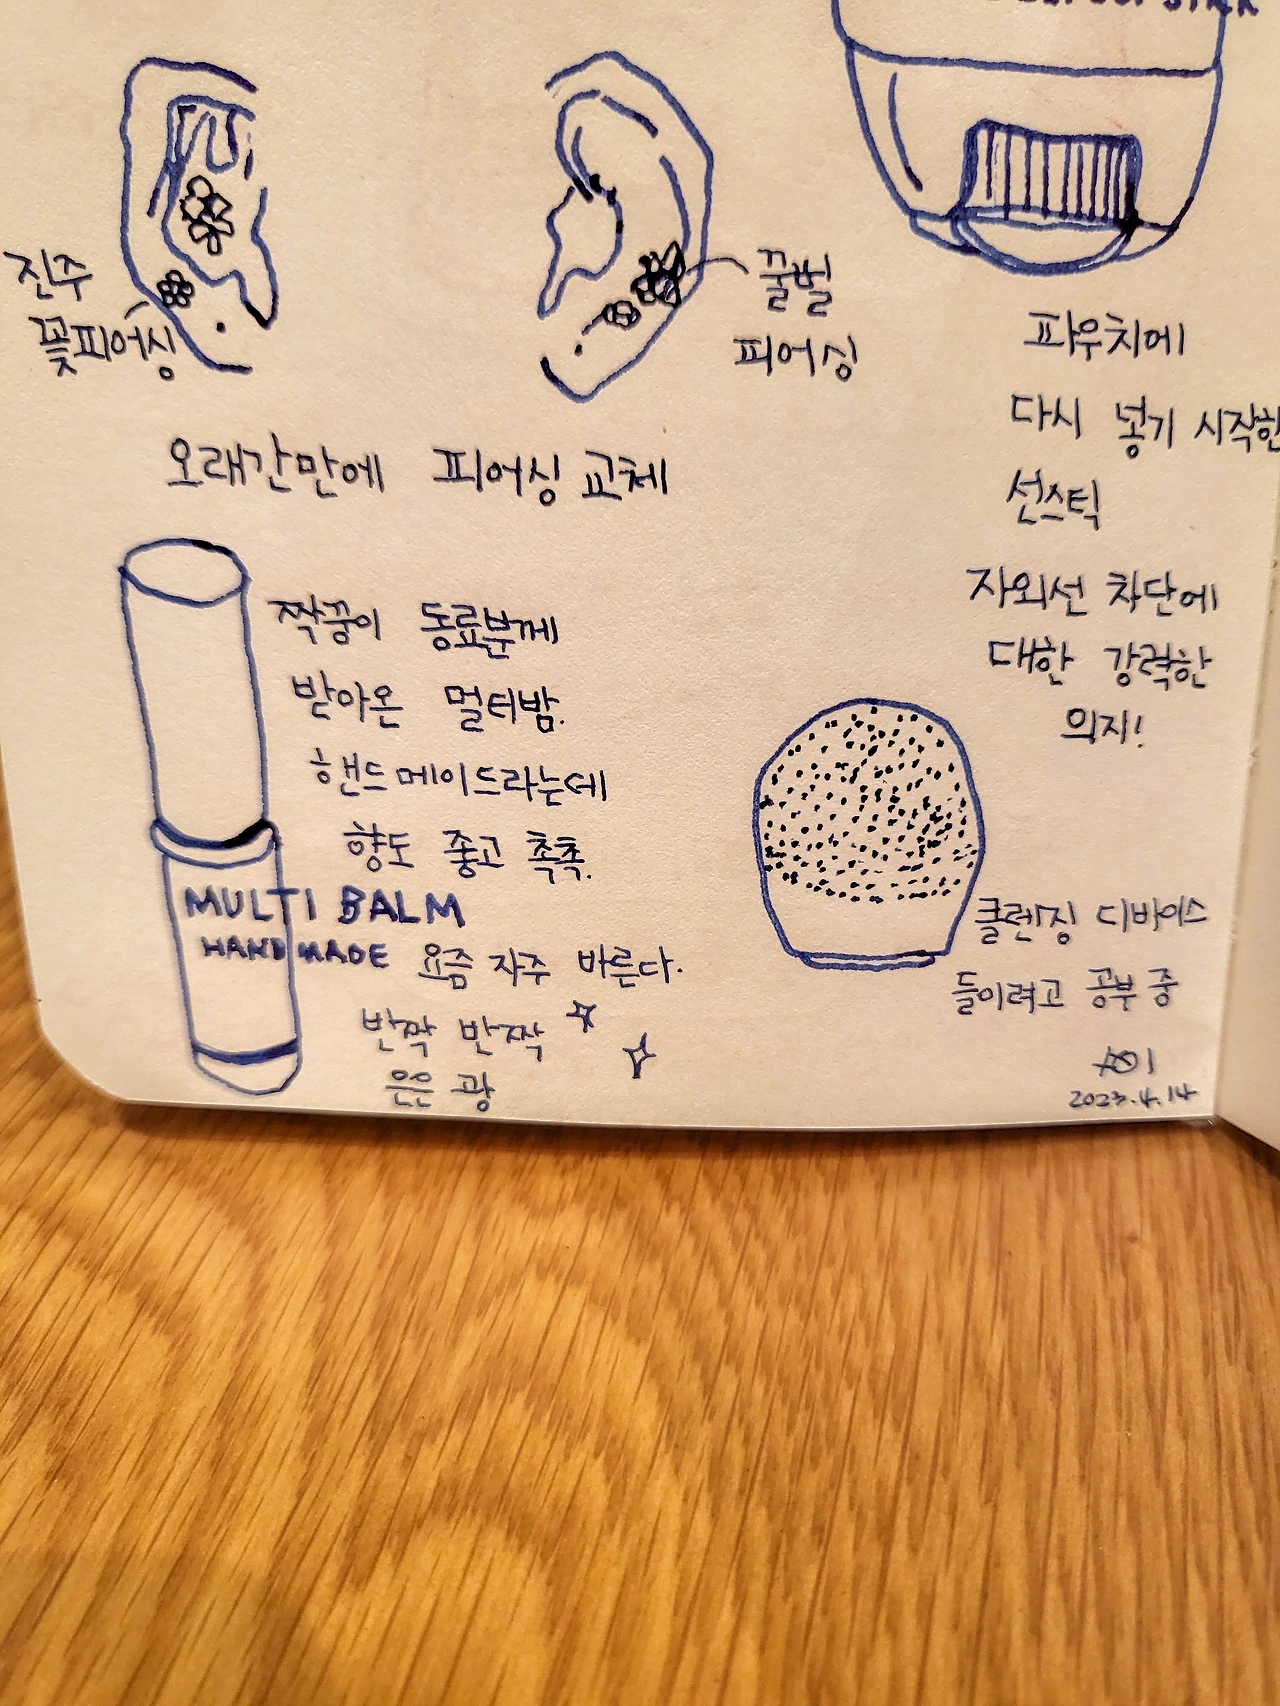 진주
꽃피어싱
꿀벌
피어싱
오래간만에 피어싱 교체
파우치에
다시 넣기 시작한
선스틱
자외선 차단에
대한 강력한
의지!
짝꿍이 동료분께
받아온 멀티밤.
핸드메이드라는데
향도 좋고 촉촉.
MULTI BALM
HANDMADE 요즘 자주 바른다.
반짝 반짝
은은 광
클렌징 디바이스
들이려고 공부 중
2023.4.14